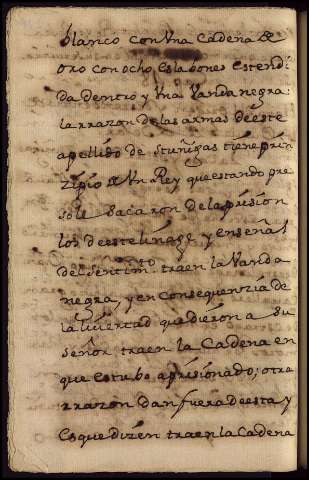 blanco con Vna Cadena de
oro con ocho eslabones estendi
da dentro y Vna Vanda negra:
la rrazon de las armas deeste
apellido de stuñigas tiene prin
zipio de Vn Rey que estando pre
so le sacaron de la prision
los de este linage y en señal
del sentim.to traen la Vanda
negra, y en consequenzia de
la livertad que dieron a su
señor traen la Cadena en
que estubo aprisionado; otra
rrazon dan fuera deesta y
es que dizen traen la Cadena